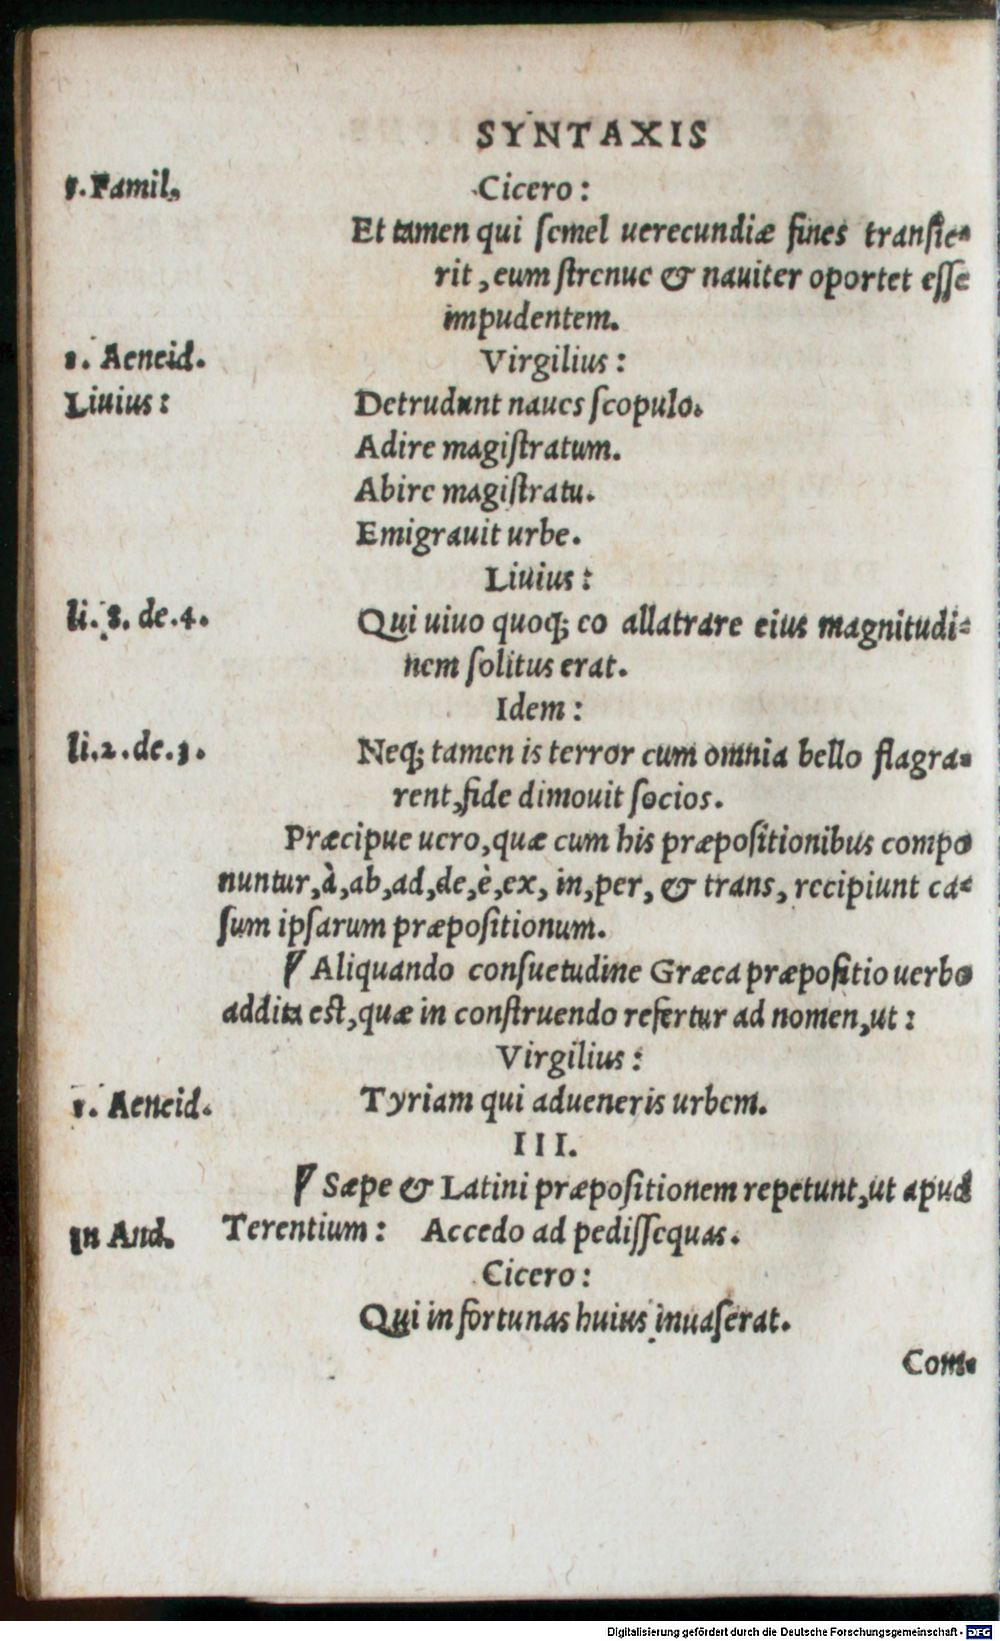 SYNTAXIS
5. Famil, Cicero:
Et tamen qui semel uerecundiæ fines transie-
rit, eum strenue & nauiter oportet esse
impudentem.
1. Aeneid. Virgilius:
Liuius: Detrudunt naues scopulo.
Adire magistratum.
Abire magistratu.
Emigrauit urbe.
Liuius:
li. 8. de. 4. Qui uiuo quoq; eo allatrare eius magnitudi-
nem solitus erat.
Idem:
li. 2. de. 3. Neq; tamen is terror cum omnia bello flagra-
rent, fide dimouit socios.
Præcipue uero, quæ cum his præpositionibus compo
nuntur, à, ab, ad, de, è, ex, in, per, & trans, recipiunt ca-
sum ipsarum præpositionum.
¶ Aliquando consuetudine Græca præpositio uerbo
addita est, quæ in construendo refertur ad nomen, ut:
Virgilius:
1. Aeneid. Tyriam qui adueneris urbem.
III.
¶ Sæpe & Latini præpositionem repetunt, ut apud
In And. Terentium: Accedo ad pedissequas.
Cicero:
Qui in fortunas huius inuaserat.
Com-
Digitalisierung gefördert durch die Deutsche Forschungsgemeinschaft - DFG